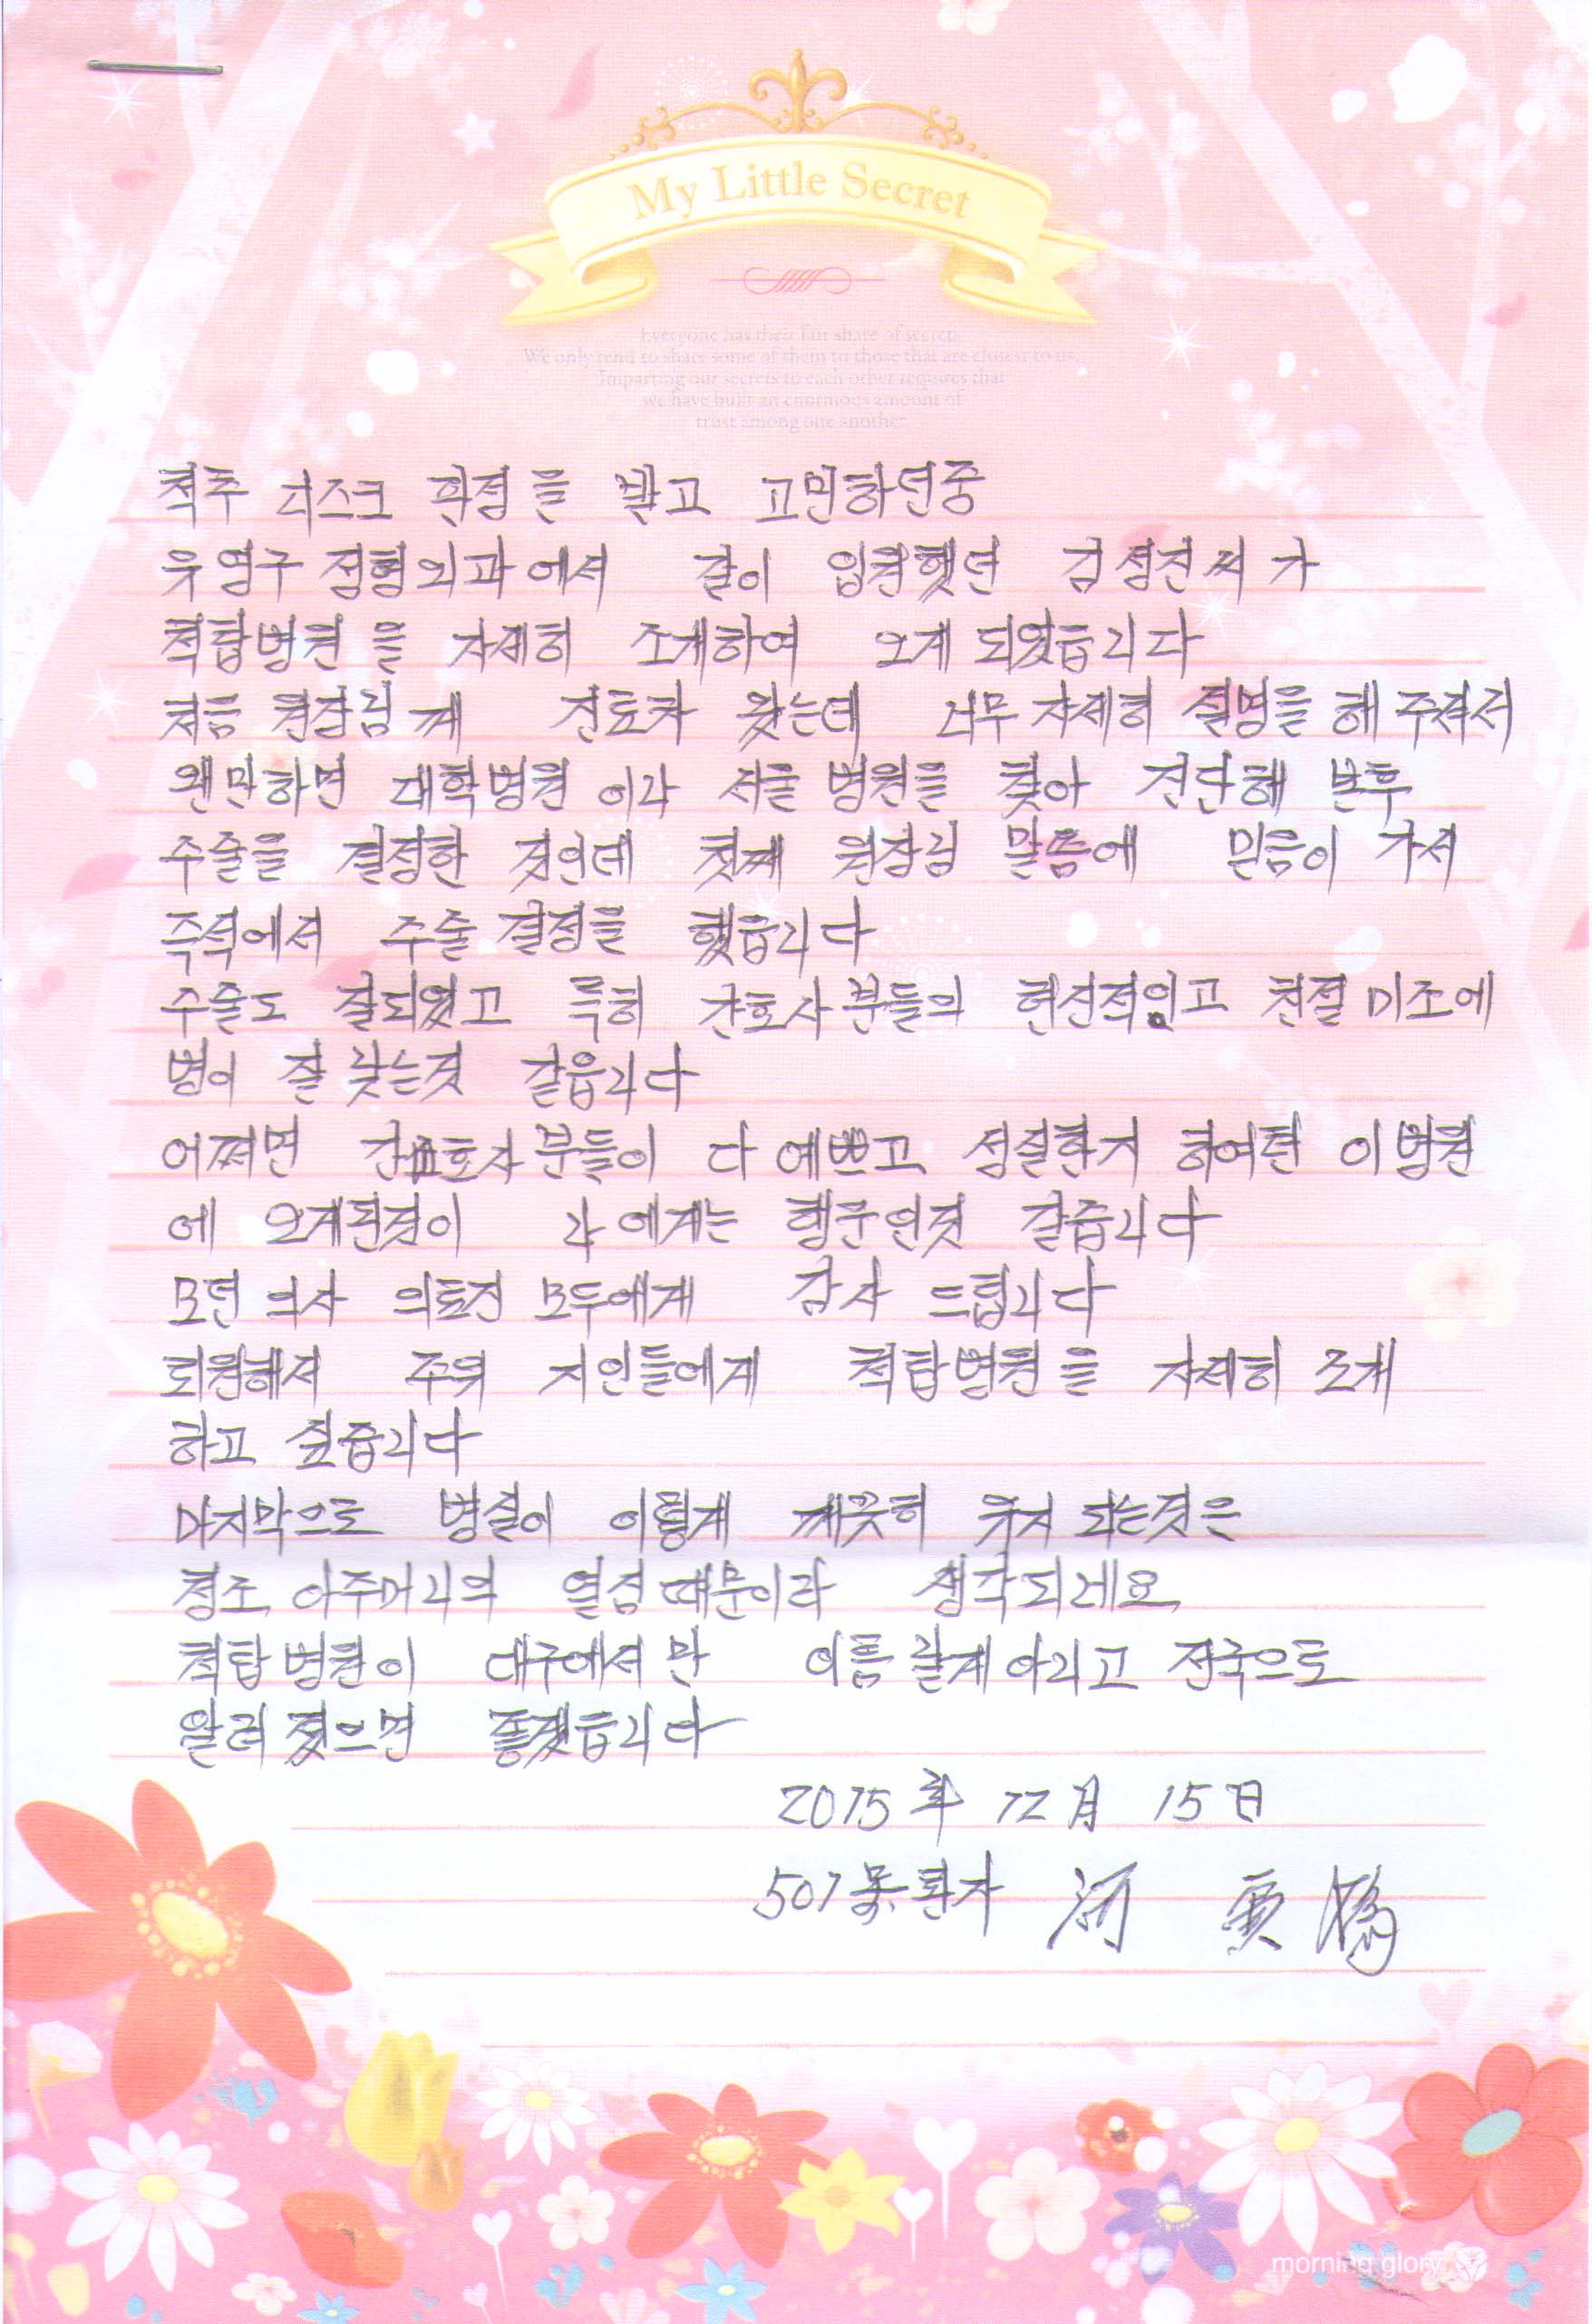 My Little Secret
Everyone has their fair share of secrets.
We only tend to share some of them to those that are closest to us.
Imparting our secrets to each other requires that
we have built an enormous amount of
trust among one another
척추 디스크 판정을 받고 고민하던중
우영구 정형외과에서 같이 입원했던 김정진씨가
척탑병원을 자세히 소개하여 오게 되었습니다
처음 원장님께 진료차 왔는데 너무 자세히 설명을 해 주셔서
왠만하면 대학병원이나 서울 병원을 찾아 진단해 본후
수술을 결정할 것인데 첫째 원장님 말씀에 믿음이 가서
즉석에서 수술 결정을 했읍니다
수술도 잘되었고 특히 간호사분들의 헌신적이고 친절 미소에
병이 잘 낮는것 같읍니다
어쩌면 간호사분들이 다 예쁘고 성실한지 하여튼 이 병원
에 오게된것이 나에게는 행운인것 같습니다
모던 의사 의료진 모두에게 감사 드립니다
퇴원해서 주위 지인들에게 척탑병원을 자세히 소개
하고 싶습니다
마지막으로 병실이 이렇게 깨끗히 유지 되는것은
청소 아주머니의 열성때문이라 생각되네요
척탑병원이 대구에서만 이름 날게 아니고 전국으로
알려 졌으면 좋겠습니다
2015 年 12 月 15 日
501 환자 河
morning glory